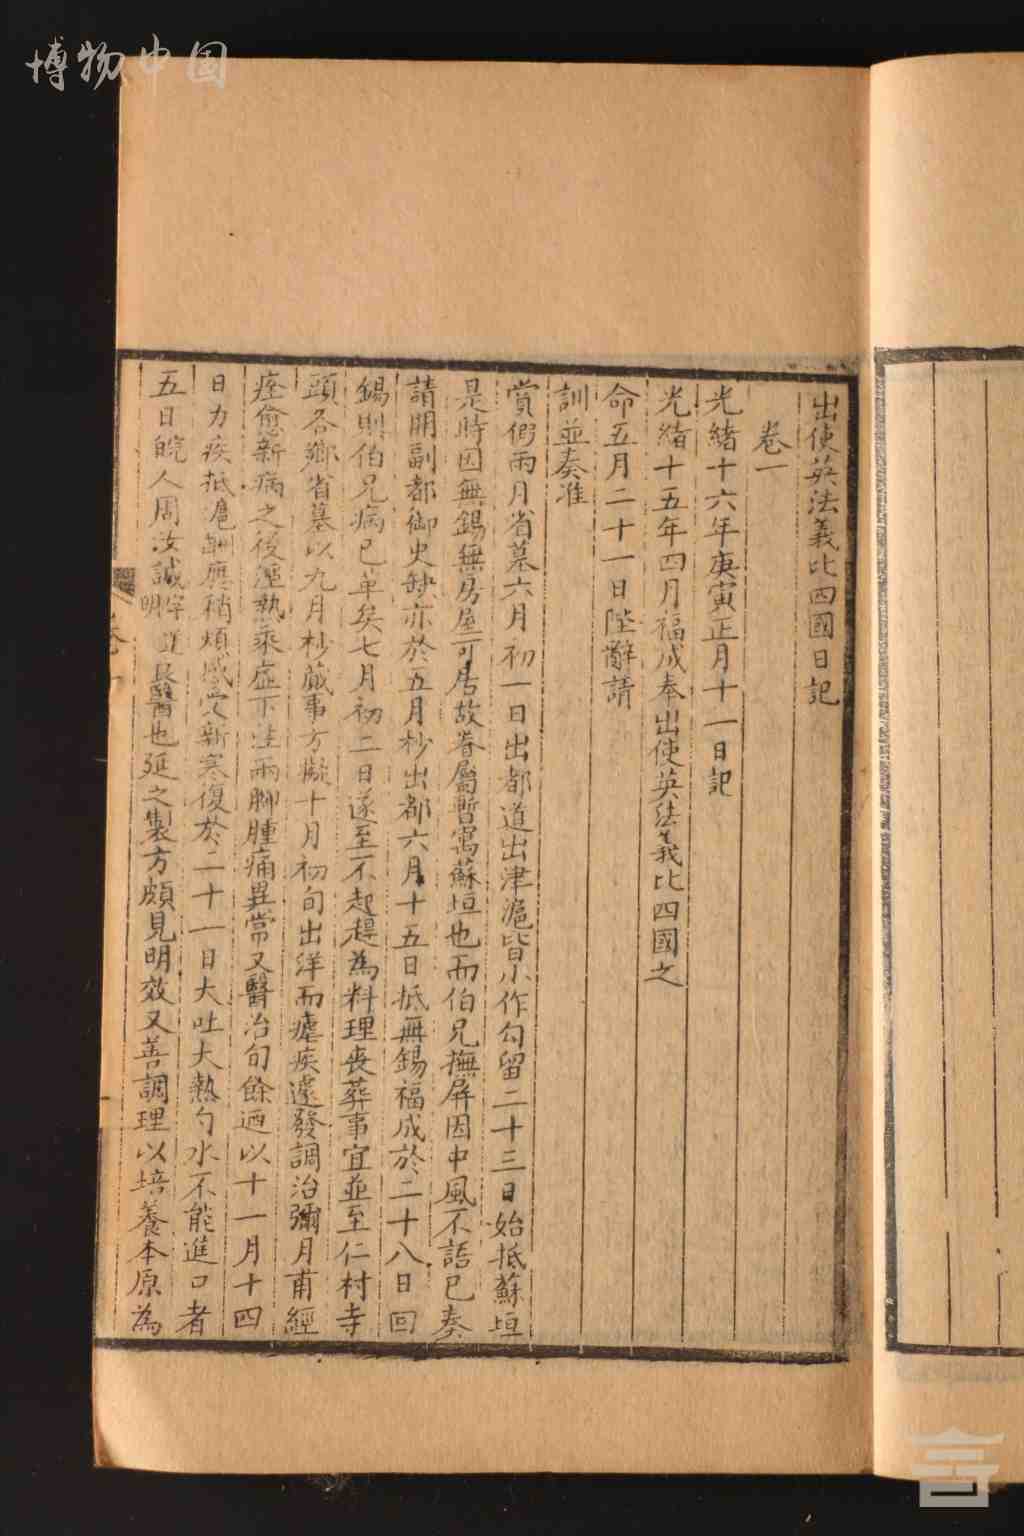 博物中国
出使英法義比四國日記
卷一
光緒十六年庚寅正月十一日記
光緒十五年四月福成奉出使英法義比四國之
命五月二十一日陛辭請
訓並奏准
賞假兩月省墓六月初一日出都道出津滬皆小作勾留二十三日始抵蘇垣
是時因無錫無房屋可居故眷屬暫寓蘇垣也而伯兄撫屏因中風不語已奏
請開副都御史缺亦於五月杪出都六月十五日抵無錫福成於二十八日回
錫則伯兄病已革矣七月初二日遂至不起趕為料理喪葬事宜並至仁村寺
頭各鄉省墓以九月杪蕆事方擬十月初旬出洋而瘧疾遽發調治彌月甫經
痊愈新病之後溼熱乘虛下注兩腳腫痛異常又醫治旬餘迺以十一月十四
日力疾抵滬酬應稍煩感受新寒復於二十一日大吐大熱勺水不能進口者
五日皖人周汝誠字明 醫也延之製方頗見明效又善調理以培養本原為